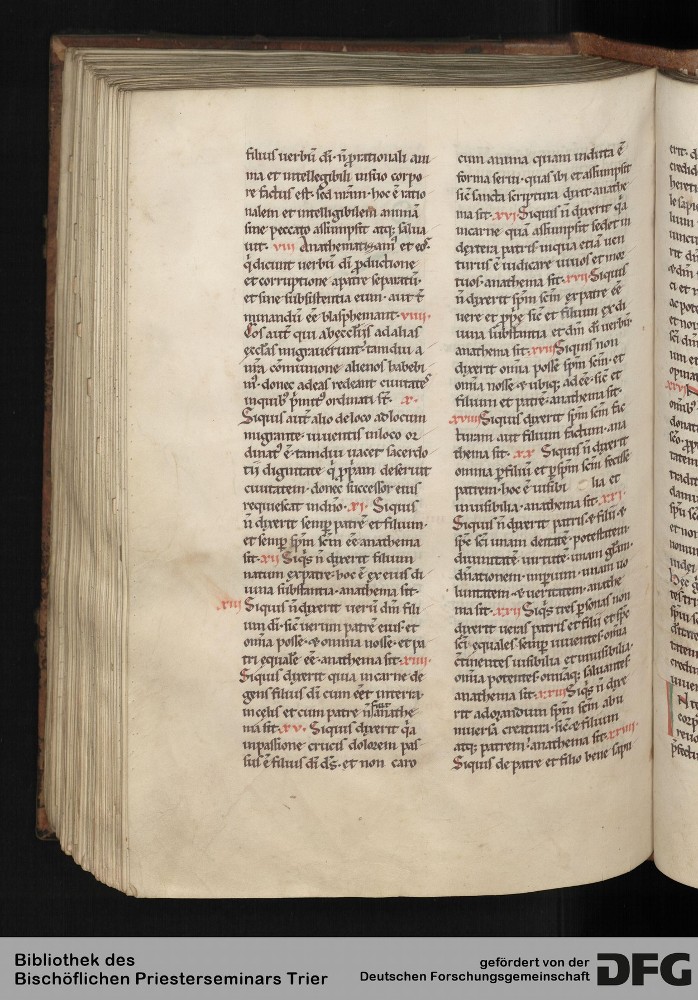 filius uerbū dī · n̄ ꝓrationali ani
ma et intellegibili insuo corpo
re factus est · sed nr̄am · hoc ē ratio
nalem et intelligibilem animā
sine peccato assumpsit atq; salua
uit · VIII Anathematizam᷒ et eos
q̄ dicunt uerbū dī ꝓductione
et corruptione apatre separatū ·
et sine subsistentia eum · aut t̄
minandū eē blasphemant · VIIII ·
Eos aut̄ qui abęcclīis ad alias
ęcclās migrauerunt · tamdiu a
nr̄a cōmunione alienos habebi
m᷒ · donec adeas redeant ciuitates
inquib᷒ p̄mit᷒ ordinati st̄ · X ·
Siquis aut̄ alio de loco ad locum
migrante · uiuentis inloco or
dinat᷒ ē · tamdiu uacet sacerdo
tii dignitate q̄ ꝓpam deseruit
ciuitatem · donec successor eius
requiescat indn̄o · XI · Siquis
n̄ dixerit semꝑ patrē et filium ·
et semꝑ sp̄m sc̄m eē · anathema
sit · XII Siq̄s n̄ dixerit filium
natum expatre · hoc ē ex eius di
uina substantia · anathema sit ·
XIII Siquis n̄ dixerit uerū dm̄ fili
um dī · sic̄ uerum patrē eius · et
om̄ia posse · & omnia nosse · et pa
tri equalē eē · anathema sit · XIIII ·
Siquis dixerit quia incarne de
gens filius dī cum eēt interra ·
incęlis et cum patre n̄ fuit · anathe
ma sit · XV · Siquis dixerit q̄a
inpassione crucis dolorem pas
sus ē filius dī ds̄ · et non caro
cum anima quam induta ē
forma serui · quā sibi et assumpsit
sic̄ sancta scriptura dixit · anathe
ma sit · XVI Siquis n̄ dixerit q̄a
incarne quā assumpsit sedet in
dextera patris inqua etiā uen
turus ē iudicare uiuos et mor
tuos · anathema sit · XVII Siquis
n̄ dixerit sp̄m sc̄m ex patre eē
uere et ꝓpe · sic̄ et filium ex di
uina substantia et dm̄ dī uerbū ·
anathema sit · XVIII Siquis non
dixerit omia posse sp̄m sc̄m · et
om̄ia nosse · & ubiq; adeē · sic̄ et
filium et patrē · anathema sit ·
XVIIII Siquis dixerit sp̄m sc̄m fac
turam aut filium factum · ana
thema sit · XX Siquis n̄ dixerit
omnia ꝑ filiū et ꝑ sp̄m sc̄m fecisse
patrem · hoc ē uisibi lia et
inuisibilia · anathema sit · XXI ·
Siquis n̄ dixerit patris & filii &
sp̄s sc̄i unam deitatē · potestatem
diuinitatē · uirtutē · unam gl̄am ·
dn̄ationem · imperium · unam uo
luntatem · & ueritatem · anathe
ma sit · XXII Siq̄s tres personas non
dixerit ueras patris et filii et sp̄s
sc̄i equales semꝑ uiuentes · om̄ia
ctinentes uisibilia et inuisibilia ·
om̄ia potentes · om̄iaq; saluantes
anathema sit · XXIII Siq̄s n̄ dixe
rit adorandum sp̄m sc̄m abu
niuersa creatura · sic̄ & filium
atq; patrem · anathema sit · XXIIII ·
Siquis de patre et filio bene sapu
Bibliothek des
Bischöflichen Priesterseminars Trier
gefördert von der
Deutschen Forschungsgemeinschaft
DFG